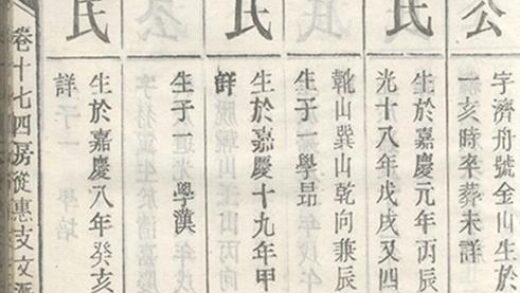 公
字濟舟號金山生於
一亥時卒葬未詳
氏
生於嘉慶元年丙辰
光十八年戊戌又四
靴山巽山乾向兼辰
生子一學昻
氏
生於嘉慶十九年甲
詳
生子一學漢
氏
生於嘉慶八年癸亥
詳
卷十七四房從惠支文